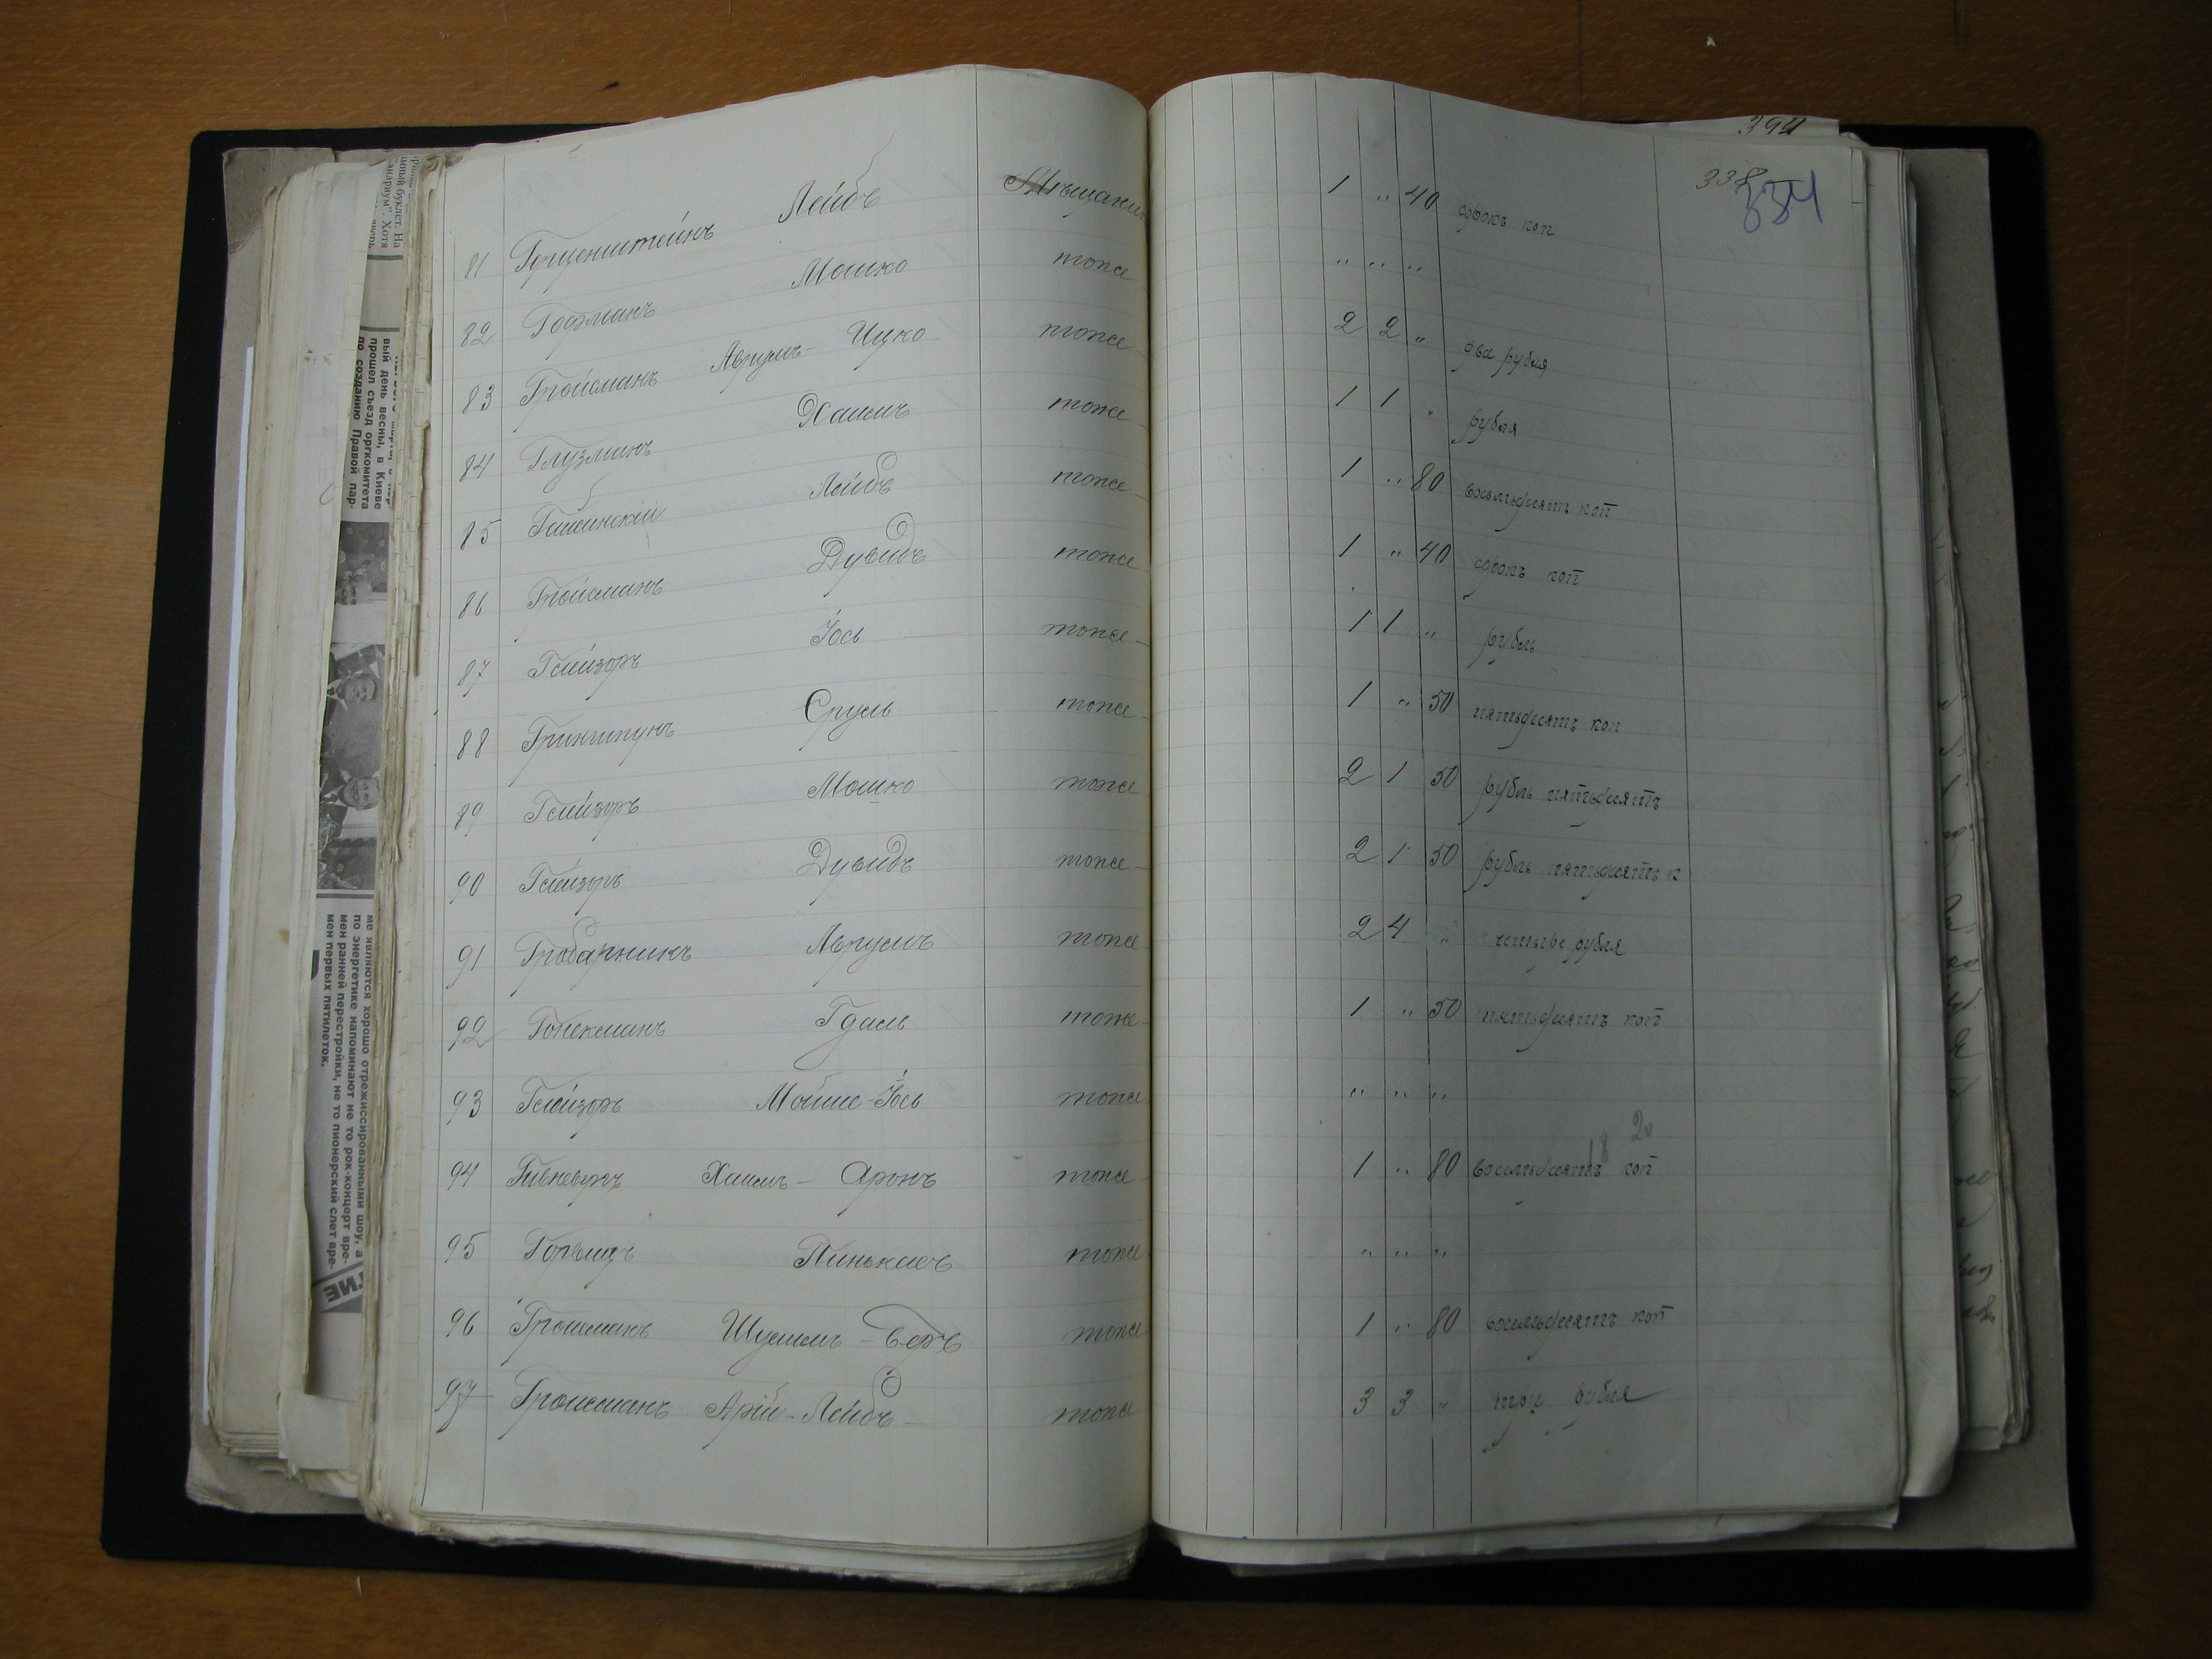 394
338
334
81 Герценштейнъ Лейбъ Мѣщанинъ 1 „ 40 сорокъ коп
82 Гофманъ Мошко тоже „ „ „
83 Гройсманъ Аврумъ-Ицко тоже 2 2 „ два рубля
84 Глузманъ Хаимъ тоже 1 1 „ рубля
85 Лейбъ тоже 1 „ 80 восемьдесятъ коп
86 Гройсманъ Дувидъ тоже 1 „ 40 сорокъ коп
87 Глейзеръ Іось тоже 1 1 „ рубль
88 Гриншпунъ Сруль тоже 1 „ 50 пятьдесятъ коп
89 Глейзеръ Мошко тоже 2 1 50 рубль пятьдесятъ
90 Глейзеръ Дувидъ тоже 2 1 50 рубль пятьдесятъ к
91 Гробарникъ Аврумъ тоже 2 4 „ четыре рубля
92 Гонекманъ Гдаль тоже 1 „ 50 пятьдесятъ коп
93 Глейзеръ Мойше-Іось тоже „ „ „
20
18
94 Хаимъ-Аронъ тоже 1 „ 80 восемьдесятъ коп
95 Горвицъ Пинькасъ тоже „ „ „
96 Гройсманъ Шулимъ-Беръ тоже 1 „ 80 восемьдесятъ коп
97 Гройсманъ Арій-Лейбъ тоже 3 3 „ три рубля
вый день весны, в Киеве
прошел съезд оргкомитета
по созданию Правой пар-
ме являются хорошо отрежиссированными шоу, а
по энергетике напоминают не то рок-концерт вре-
мен ранней перестройки, не то пионерский слет вре-
мен первых пятилеток.